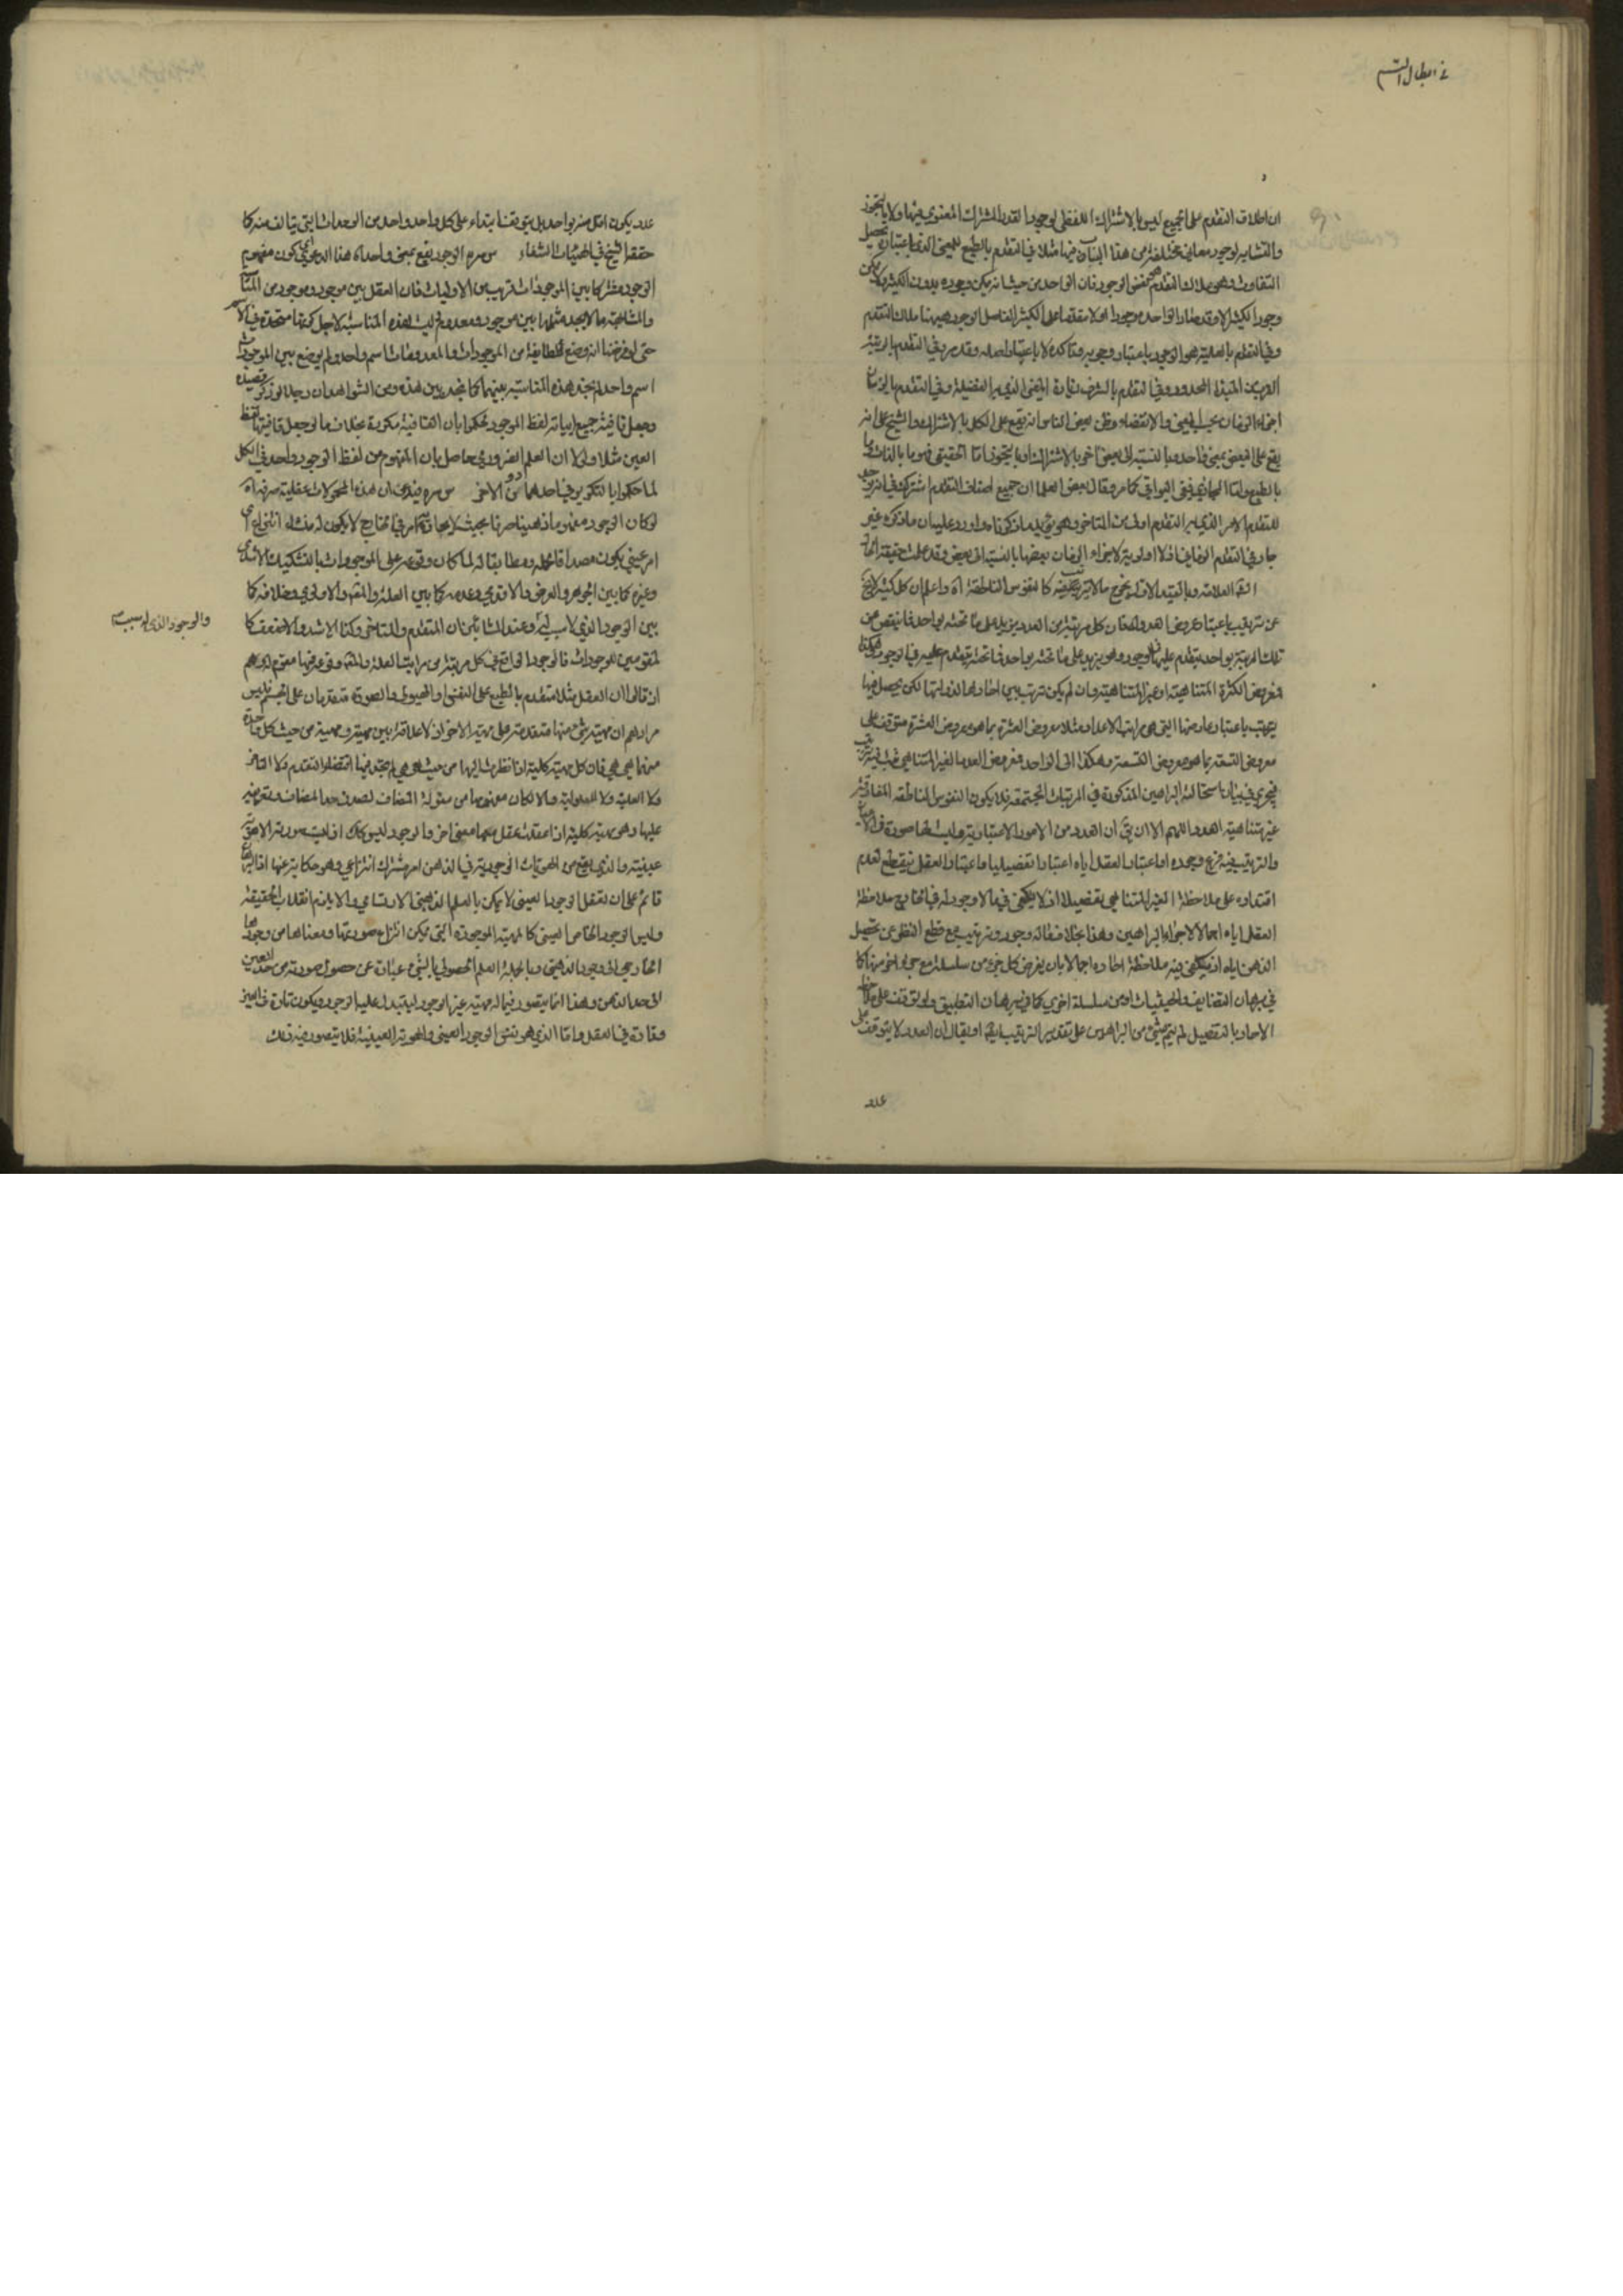 في ابطال التسـ
ان اطلاق التقدم على الجميع ليس بالاشتراك اللفظي لوجود القدر المشترك المعنوي فيها ولا بالتجوز
والتشابه لوجود معاني مختلفة من هذا الباب فيها مثلا في التقدم بالطبع المعنى الذي باعتباره تحصيل
التفاوت وهو ملاك التقدم هو نفس الوجود فان الواحد من حيث انه يمكن وجوده بدون الكثير ولا يمكن
وجود الكثير الا وقد صار الواحد موجودا اولا متقدما على الكثير الفاصل الوجود ههنا ملاك التقدم
وفي التقدم بالعلية هو الوجود باعتبار وجوبه وتاكده لا باعتبار اصله وقد مر وفي التقدم بالرتبة
القرب من المبدأ المحدود وفي التقدم بالشرف زيادة المعنى الذي به الفضيلة وفي التقدم بالزمان
اجزاء الزمان بحسب المضي والانقضاء وظن بعض الناس انه يقع على الكل بالاشتراك والشيخ على انه
يقع على البعض بمعنى واحد وبالنسبة الى بعض اخر بالاشتراك او بالتجوز اما الحقيقي فهو ما بالذات وما
بالطبع واما المجازي ففي البواقي كما مر وقال بعض العلما ان جميع اصناف التقدم اشتركت في انه يوجد
للمتقدم الامر الذي به التقدم اولى من المتاخر وهو قريب مما ذكرناه واورد عليه بان ما ذكره غير
جار في التقدم الزماني اذ لا اولوية لاجزاء الزمان بعضها بالنسبة الى بعض وقد علمت حقيقة الحال
العلامة وبالقيد الاول يخرج ما لا ترتيب فيه كالنفوس الناطقة اه واعلم ان كل كثير لا يخ
عن ترتيب باعتبار عروض العدد له فان كل مرتبة من العدد يزيد على ما تحته بواحد فما ينقص عن
تلك المرتبة بواحد يتقدم عليها في الوجود وهو يزيد على ما تحته بواحد فما تحته يتقدم عليه في الوجود وهكذا
فمعروض الكثرة المتناهية او غير المتناهية وان لم يكن ترتيب بين احادها لذواتها لكن يحصل فيها
ترتيب باعتبار عارضها التي هي مراتب الاعداد مثلا معروض العشرة بما هو معروض العشرة متوقف على
معروض التسعة بما هو معروض التسعة وهكذا الى الواحد فمعروض العدد الغير المتناهي يثبت فيه ترتيب
فيجري في بيان استحالته البراهين المذكورة في المرتبات المجتمعة فلا يكون النفوس الناطقة المفارقة
غير متناهية العدد اللهم الا ان يق ان العدد من الامور الاعتبارية وليست لها صورة في الاعيان
والترتيب فيه فرع وجوده او اعتبار العقل اياه اعتبارا تفصيليا واعتبار العقل ينقطع لعدم
اقتداره على ملاحظة الغير المتناهي تفصيلا اذ لا يكفي فيما لا وجود له في الخارج ملاحظة
العقل اياه اجمالا لاجراء البراهين وهذا بخلاف ما له وجود وترتيب مع قطع النظر عن تحصيل
الذهن اياه اذ يكفي فيه ملاحظة احاده اجمالا بان يفرض كل جزء من سلسلة مع جزء اخر منها كما
في برهان التضايف والحيثيات او من سلسلة اخرى كما في برهان التطبيق ولو توقف على ملاحظة
الاحاد بالتفصيل لم يتم شيء من البراهين على تقدير الترتيب ايضا او يقال ان العدد لا يتوقف على
عدد
عدد يكون اقل منه بواحد بل يتوقف ابتداء على كل واحد واحد من الوحدات التي يتالف منه كما
حققه الشيخ في الهيات الشفاء س مره الوجود يقع بمعنى واحد اه هذا الدعوى اي كون مفهوم
الوجود مشتركا بين الموجودات قريب من الاوليات فان العقل يجد بين موجود وموجود من المناسبة
والمشابهة ما لا يجد مثلها بين موجود ومعدوم وليست هذه المناسبة لاجل كونها متحدة في الاسم
حتى لو فرضنا انه وضع لطايفة من الموجودات والمعدومات اسم واحد ولم يوضع بين الموجودات
اسم واحد لم نجد هذه المناسبة بينهما كما نجد بين هذه ومن الشواهد ان رجلا لو ذكر قصيدة
وجعل قافية جميع ابياته لفظ الموجود لحكموا بان القافية مكررة بخلاف ما لو جعل قافيتها لفظ
العين مثلا ولولا ان العلم الضروري حاصل بان المفهوم من لفظ الوجود واحد في الكل
لما حكموا بالتكرير في احدهما دون الاخر س مره فيندى ان هذه المحمولات عقلية صرفة اه
لو كان الوجود مفهوما ذهنيا صرفا بحيث لا يحاذيه امر في الخارج لا يكون له منشاء انتزاع اي
امر عيني يكون مصداقا لحمله ومطابقا له لما كان وقوعه على الموجودات بالتشكيك الاشدي
وغيره كما بين الجوهر والعرض والاقدمي وعدمه كما بين العلة والمعلول والاولوي وخلافه كما
بين الوجود الذي لا سبب له وعند المشائين ان المتقدم والمتاخر وكذا الاشد والاضعف كا
لمقومين للوجودات فالوجود الواقع في كل مرتبة من مراتب العلة والمعلول وقوعه فيها مقوم له وهم
اذ قالوا ان العقل مثلا متقدم بالطبع على النفس او الهيولى والصورة متقدمان على الجسم فليس
مرادهم ان مهية شيء منها متقدمة على مهية الاخر اذ لا علاقة بين مهية ومهية من حيث كل واحدة
منهما هي هي فان كل مهية كلية اذا نظرت اليها من حيث هي هي لم تجد فيها اقتضاء التقدم ولا التاخر
ولا العلية ولا المعلولية والا لكان مفهومها من مقولة المضاف لصدق حد المضاف وتعريفه
عليها وهي مهية كلية اذا عقلت عقل معها معنى اخر والوجود ليس كذلك اذ ليست صورته الا هوية
عينية والذي يقع من الهويات الوجودية في الذهن امر مشترك انتزاعي وهو حكاية عنها اذ البرهان
قائم على ان تعقل الوجود العيني لا يمكن بالعلم الذهني الارتسامي والا يلزم انقلاب الحقيقة
وليس الوجود الخاص العيني كالمهية الموجودة التي يمكن انتزاع صورتها ومعناها من وجودها
الخارجي الى وجود الذهني وبالجملة العلم الحصولي بالشيء عبارة عن حصول صورته من حد العين
الى حد الذهن وهذا انما يتصور فيما له مهية غير الوجود ليتبدل عليه الوجود ويكون تارة في العين
وتارة في العقل واما الذي هو نفس الوجود العيني والهوية العينية فلا يتصور فيه ذلك
والوجود الذي له سبب